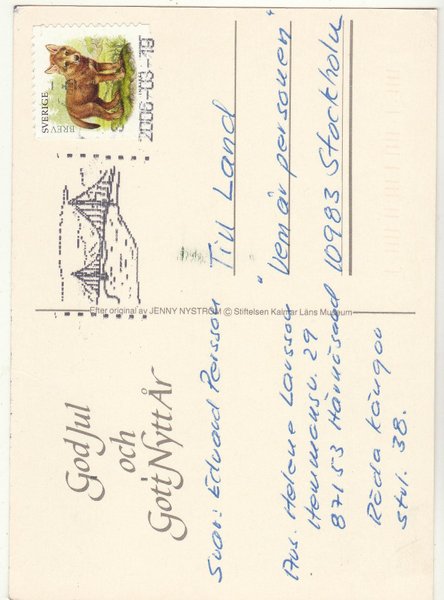 God Jul
och
Gott Nytt År
Svar: Edvard Persson
Avs. Helene Larsson
Hemmansv. 29
87153 Härnösand
Röda Kängor
Strl. 38.
Efter original av JENNY NYSTRÖM © Stiftelsen Kalmar Läns Museum
SVERIGE
BREV
2006-03-19
Till Land
"Vem är personen"
10983 Stockholm